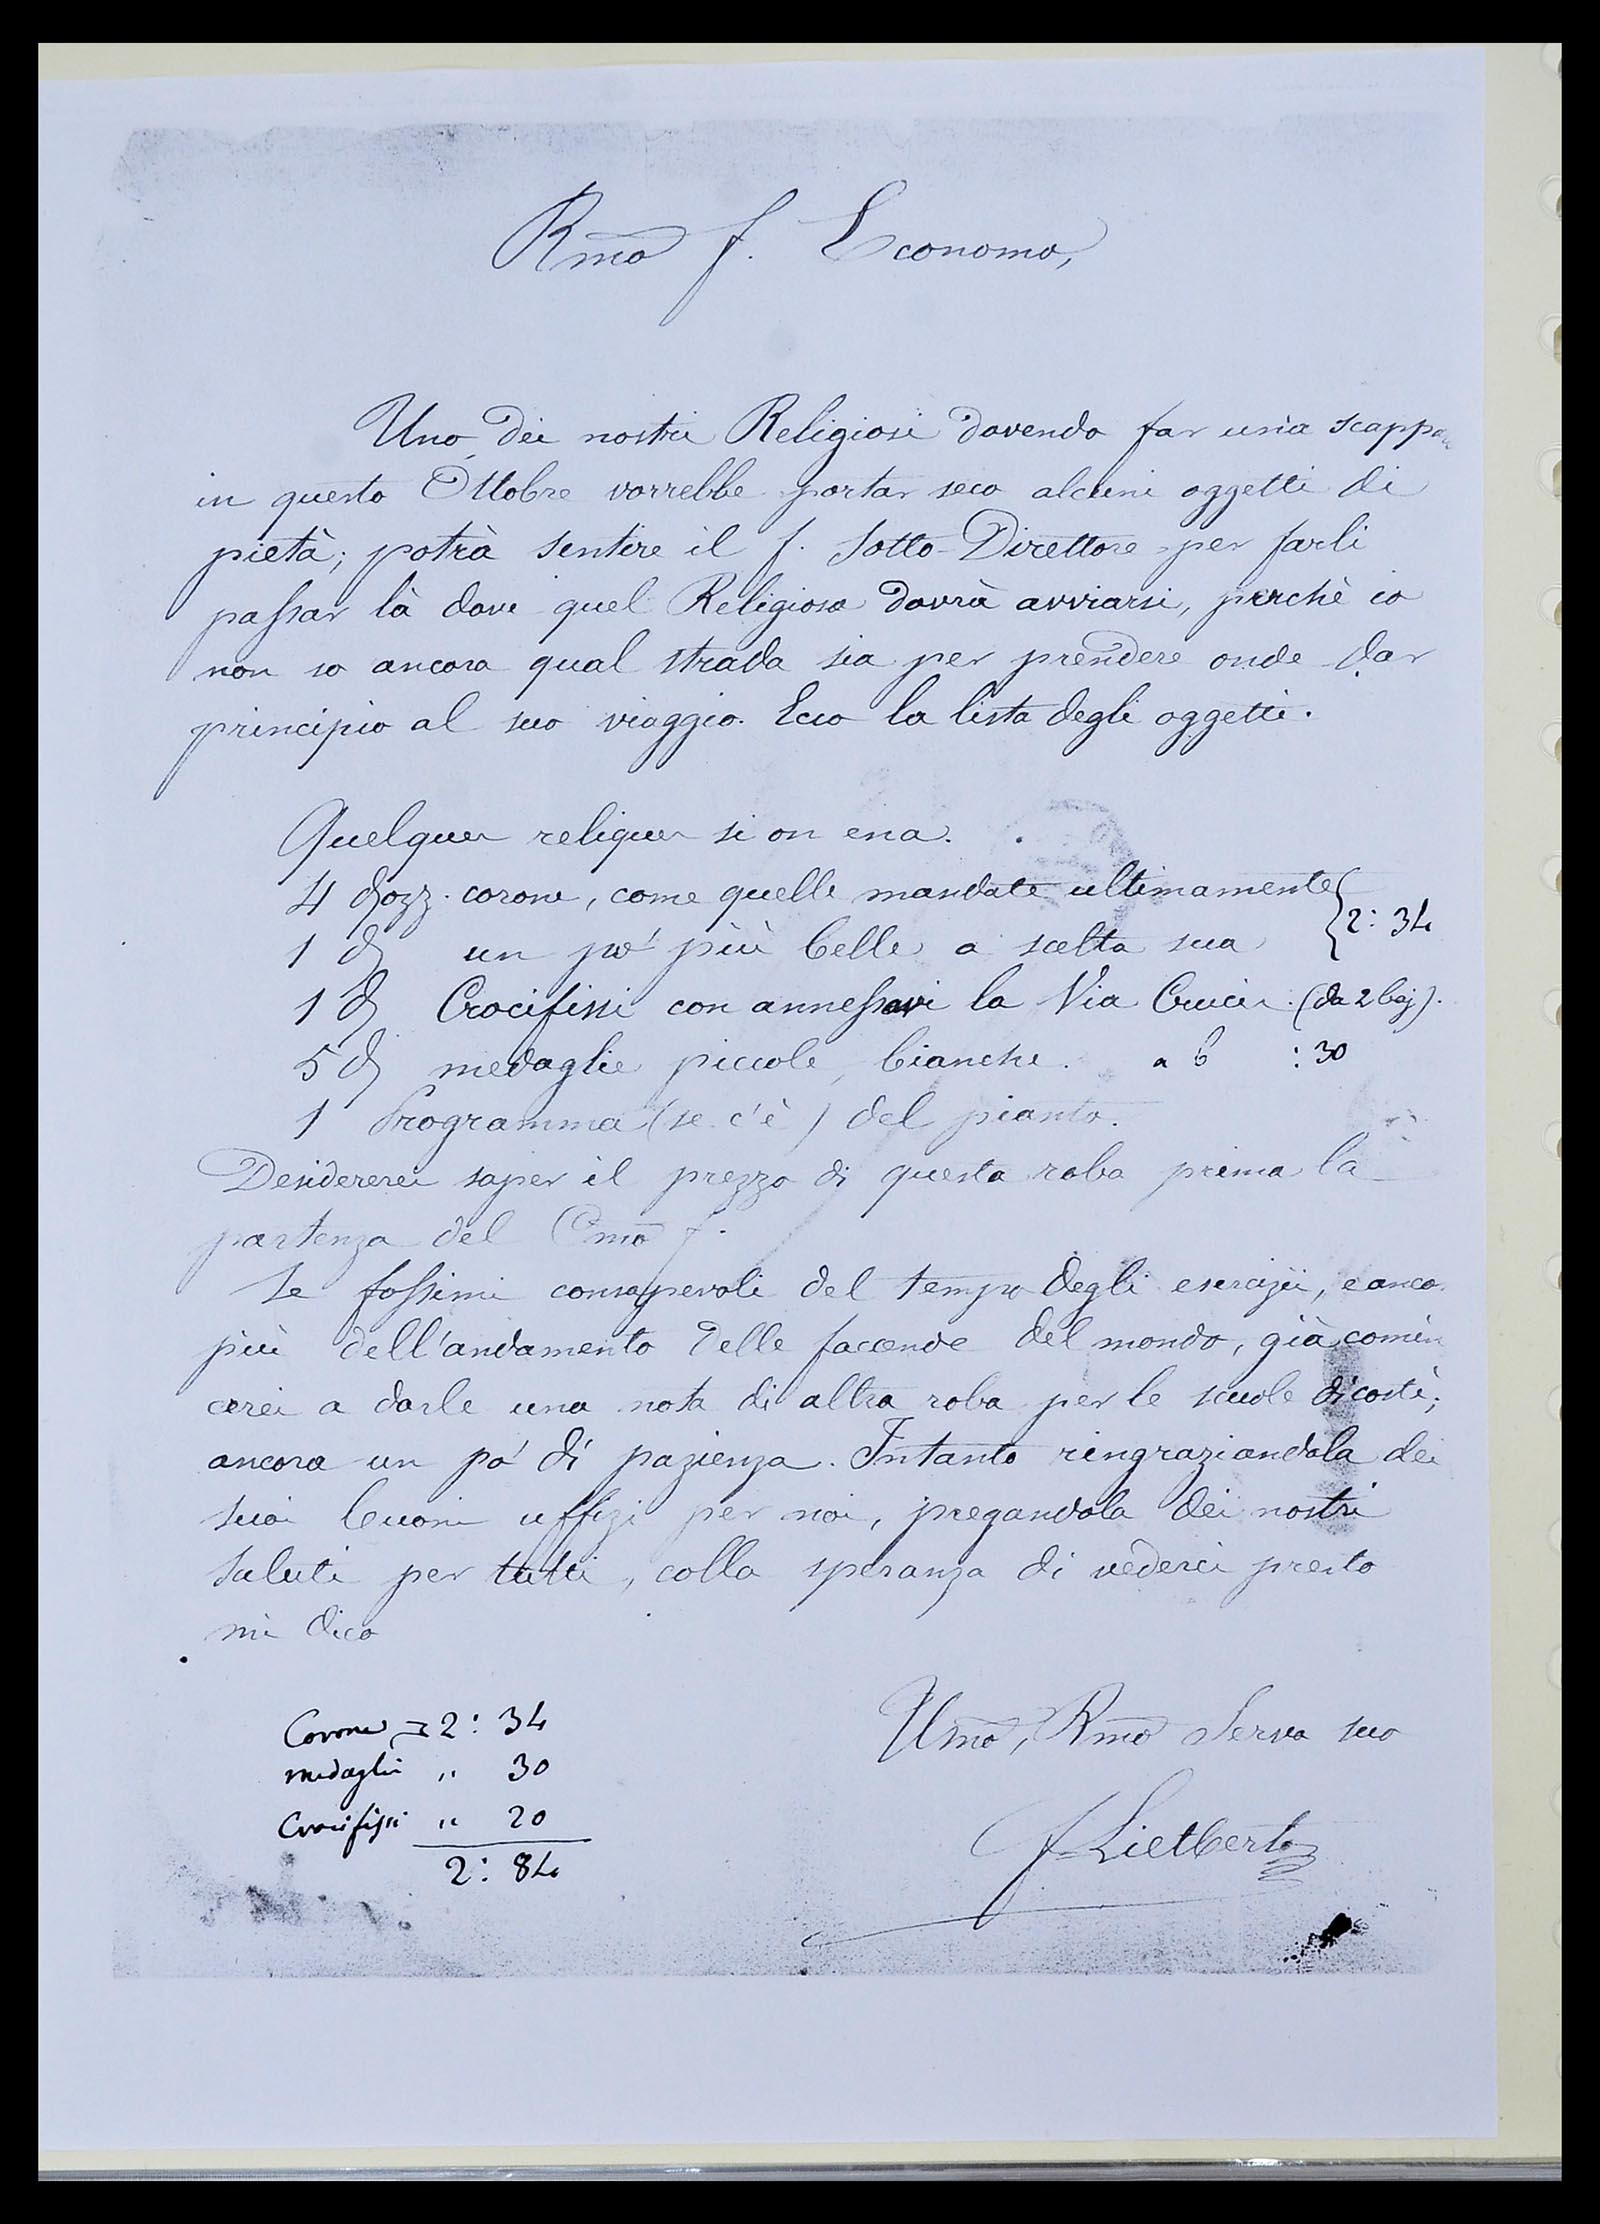 Rmo f. Economo,
Uno dei nostri Religiosi dovendo far una scappa
in questo Ottobre vorrebbe portar seco alcuni oggetti di
pietà; potrà sentire il f. Sotto-Direttore per farli
passar là dove quel Religioso dovrà avviarsi, perchè io
non so ancora qual strada sia per prendere onde dar
principio al suo viaggio. Ecco la lista degli oggetti.
Quelques reliques si on en a.
4 dozz. corone, come quelle mandate ultimamente } 2: 34
1 d un po' più belle a scelta sua
1 d Crocifissi con annessavi la Via Crucis. (da 2 baj).
5 d medaglie piccole, bianche. a 6 : 30
1 Programma (se c'è) del pianto.
Desidererei saper il prezzo di questa roba prima la
partenza del Cmo f.
Se fossimi consapevoli del tempo degli esercizii, e anco
più dell'andamento delle faccende del mondo, già comin
cerei a darle una nota di altra roba per le scuole di costì;
ancora un po' di pazienza. Intanto ringraziandola dei
suoi buoni uffizi per noi, pregandola dei nostri
saluti per tutti, colla speranza di vederci presto
mi dico
Umo, Rmo Servo suo
f. Lietbert
Corone 2: 34
medaglie " 30
Crocifissi " 20
2: 84